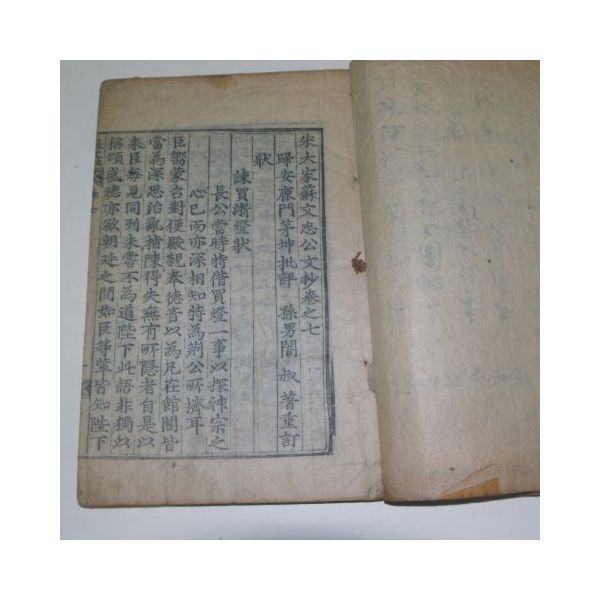 宋大家蘇文忠公文抄卷之七
歸安鹿門茅坤批評 孫男闇叔著重訂
狀
諫買浙燈狀
長公當時特借買燈一事以探神宗之
心已而亦深相知特為荊公所擠耳
臣嚮蒙召對便殿親奉德音以為凡在館閣皆
當為深思治亂指陳得失無有所隱者自是以
來臣每見同列未嘗不為道陛下此語非獨以
稱頌盛德亦欲朝廷之間如臣等輩皆知陛下